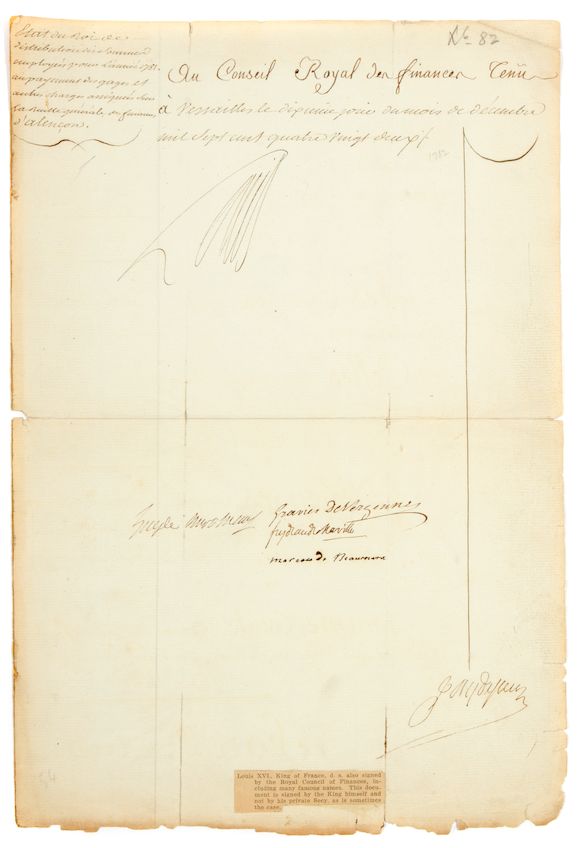 Etat du Roi de
distribution des sommes
employées pour L'année 1781.
au payement des gages et
autres charges assignées sur
la recette générale des finances
d'alençon.
N.° 82
Au Conseil Royal des finances Tenu
à Versailles le dixieme jour du mois de décembre
mil sept cent quatre vingt deux /.
1782
Gravier De Vergennes
feydeau de Marville
moreau de Beaumont
54
Louis XVI., King of France, d. s. also signed
by the Royal Council of Finances, in-
cluding many famous names. This docu-
ment is signed by the King himself and
not by his private Secy. as is sometimes
the case.